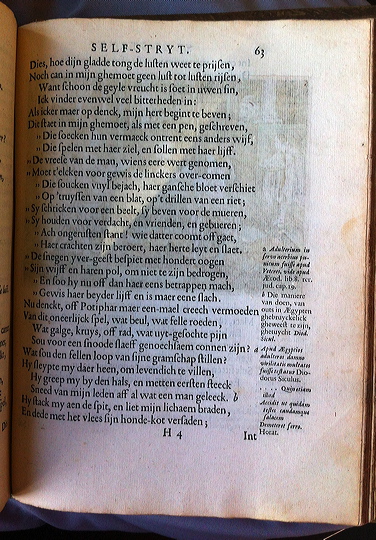 SELF-STRYT. 63
Dies, hoe dijn gladde tong de lusten weet te prijsen,
Noch can in mijn ghemoet geen lust tot lusten rijsen,
Want schoon de geyle vreucht is soet in uwen sin,
Ick vinder even wel veel bitterheden in:
Als icker maer op denck, mijn hert begint te beven;
Dit staet in mijn ghemoet, als met een pen, geschreven,
„ Die soecken hun vermaeck ontrent eens anders wijf,
„ Die spelen met haer ziel, en sollen met haer lijff.
„ De vreese van de man, wiens eere wert genomen,
„ Moet t'elcken voor gewis de linckers over-comen
„ Die soucken vuyl bejach, haer gansche bloet verschiet
„ Op 'truyssen van een blat, op't drillen van een riet;
„ Sy schricken voor een beelt, sy beven voor de mueren,
„ Sy houden voor verdacht, en vrienden, en gebueren;
„ Ach ongerusten stant! wie datter coomt oft gaet,
„ Haer crachten zijn beroert, haer herte leyt en slaet.
„ De snegen yver-geest bespiet met hondert oogen
„ Sijn wijff en haren pol, om niet te zijn bedrogen,
„ En soo hy nu off dan haer eens betrappen mach,
„ Gewis haer beyder lijff en is maer eene slach.
Nu denckt, off Potiphar maer een-mael creech vermoeden
Van dit oneerlick spel, wat beul, wat felle roeden,
Wat galge, kruys, off rad, wat uyt-gesochte pijn
Sou voor een snoode slaeff genoechsaem connen zijn? a
Wat sou den fellen loop van sijne gramschap stillen?
Hy sleypte my daer heen, om levendich te villen,
Hy greep my by den hals, en metten eersten steeck
Sneed van mijn leden aff al wat een man geleeck. b
Hy stack my aen de spit, en liet mijn lichaem braden,
En dede met het vlees sijn honde-kot versaden;
H 4 Int
a Adulterium in
servo acerbius pu-
nitum fuisse apud
Veteres, vide apud
Æcod. lib 8. rer.
jud. cap. 19.
b Die maniere
van doen, van
outs in Ægypten
ghebruyckelick
gheweest te zijn,
ghetuycht Diod.
Sicul.
Apud Ægyptios
adulteros damno
virilitatis multatos
fuisse testatur Dio-
dorus Siculus.
.... Quinetiam
illud
Accidit ut quidam
testes caudamque
salacem
Demeteret ferro.
Horat.